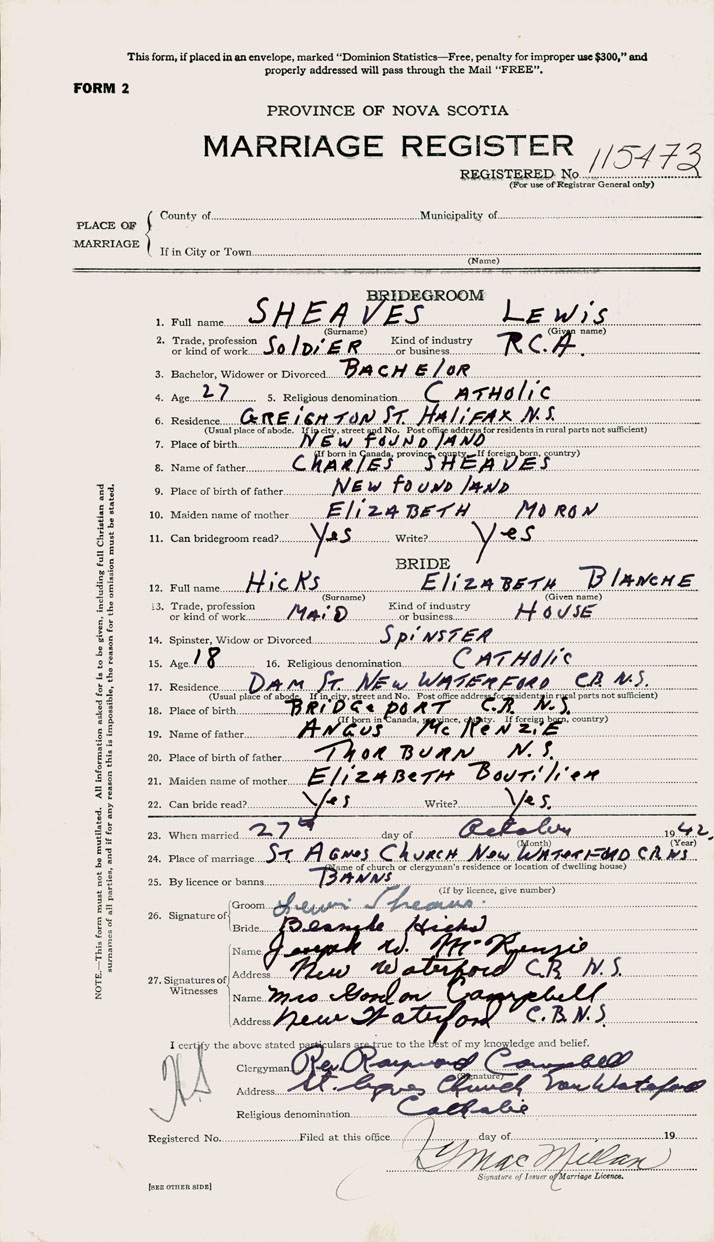 This form, if placed in an envelope, marked “Dominion Statistics—Free, penalty for improper use $300,” and
properly addressed will pass through the Mail “FREE”.
FORM 2
PROVINCE OF NOVA SCOTIA
MARRIAGE REGISTER
REGISTERED No. 115473
(For use of Registrar General only)
PLACE OF MARRIAGE
County of Municipality of
If in City or Town
(Name)
BRIDEGROOM
1. Full name SHEAVES LEWIS
(Surname) (Given name)
2. Trade, profession or kind of work SOLDIER Kind of industry or business R.C.A.
3. Bachelor, Widower or Divorced BACHELOR
4. Age 27 5. Religious denomination CATHOLIC
6. Residence GREIGHTON ST. HALIFAX N.S.
(Usual place of abode. If in city, street and No. Post office address for residents in rural parts not sufficient)
7. Place of birth NEW FOUNDLAND
(If born in Canada, province, county. If foreign born, country)
8. Name of father CHARLES SHEAVES
9. Place of birth of father NEW FOUNDLAND
10. Maiden name of mother ELIZABETH MORON
11. Can bridegroom read? Yes Write? Yes
BRIDE
12. Full name HICKS ELIZABETH BLANCHE
(Surname) (Given name)
13. Trade, profession or kind of work MAID Kind of industry or business HOUSE
14. Spinster, Widow or Divorced SPINSTER
15. Age 18 16. Religious denomination CATHOLIC
17. Residence DAM ST. NEW WATERFORD C.B. N.S.
(Usual place of abode. If in city, street and No. Post office address for residents in rural parts not sufficient)
18. Place of birth BRIDGEPORT C.B. N.S.
(If born in Canada, province, county. If foreign born, country)
19. Name of father ANGUS McKENZIE
20. Place of birth of father THORBURN N.S.
21. Maiden name of mother ELIZABETH BOUTILIER
22. Can bride read? Yes Write? Yes.
23. When married 27th day of October 1942.
(Month) (Year)
24. Place of marriage ST AGNES CHURCH NEW WATERFORD CB NS
(Name of church or clergyman's residence or location of dwelling house)
25. By licence or banns BANNS
(If by licence, give number)
26. Signature of
Groom Lewis Sheaves.
Bride Blanche Hicks
27. Signatures of Witnesses
Name Joseph W. McKenzie
Address New Waterford C.B. N.S.
Name Mrs Gordon Campbell
Address New Waterford C.B.N.S.
I certify the above stated particulars are true to the best of my knowledge and belief.
Clergyman Rev. Raymond Campbell
(Signature)
Address St. Agnes Church New Waterford
Religious denomination Catholic
Registered No. Filed at this office day of 19
MacMillan
Signature of Issuer of Marriage Licence.
[SEE OTHER SIDE]
NOTE.—This form must not be mutilated. All information asked for is to be given, including full Christian and
surnames of all parties, and if for any reason this is impossible, the reason for the omission must be stated.